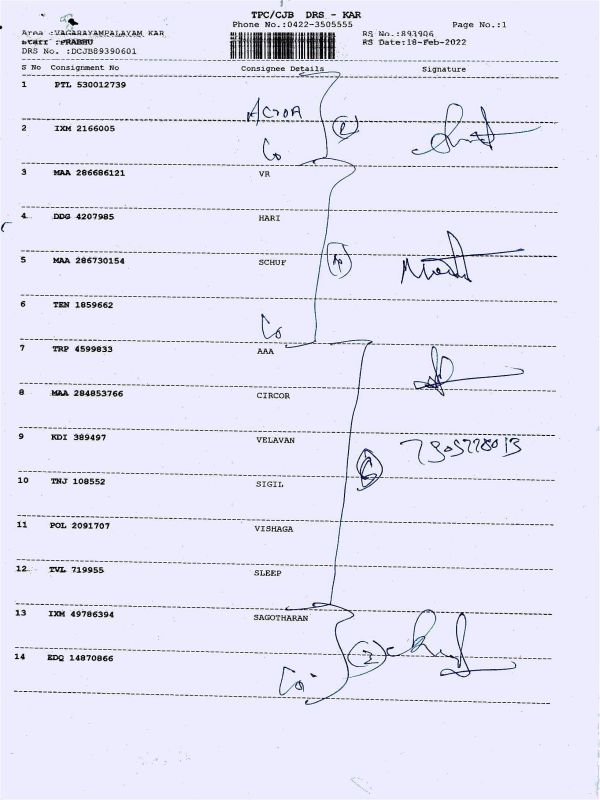 TPC/CJB DRS - KAR
Phone No.:0422-3505555 Page No.:1
Area :VAGARAYAMPALAYAM KAR RS No.:893906
Staff :PRABHU RS Date:18-Feb-2022
DRS No. :DCJB89390601
S No Consignment No Consignee Details Signature
1 PTL 530012739
ACTOA
2 IXM 2166005
Co
3 MAA 286686121 VR
4 DDG 4207985 HARI
5 MAA 286730154 SCHUF
6 TEN 1859662
Co
7 TRP 4599833 AAA
8 MAA 284853766 CIRCOR
9 KDI 389497 VELAVAN
10 TNJ 108552 SIGIL
11 POL 2091707 VISHAGA
12 TVL 719955 SLEEP
13 IXM 49786394 SAGOTHARAN
2
14 EDQ 14870866
Co